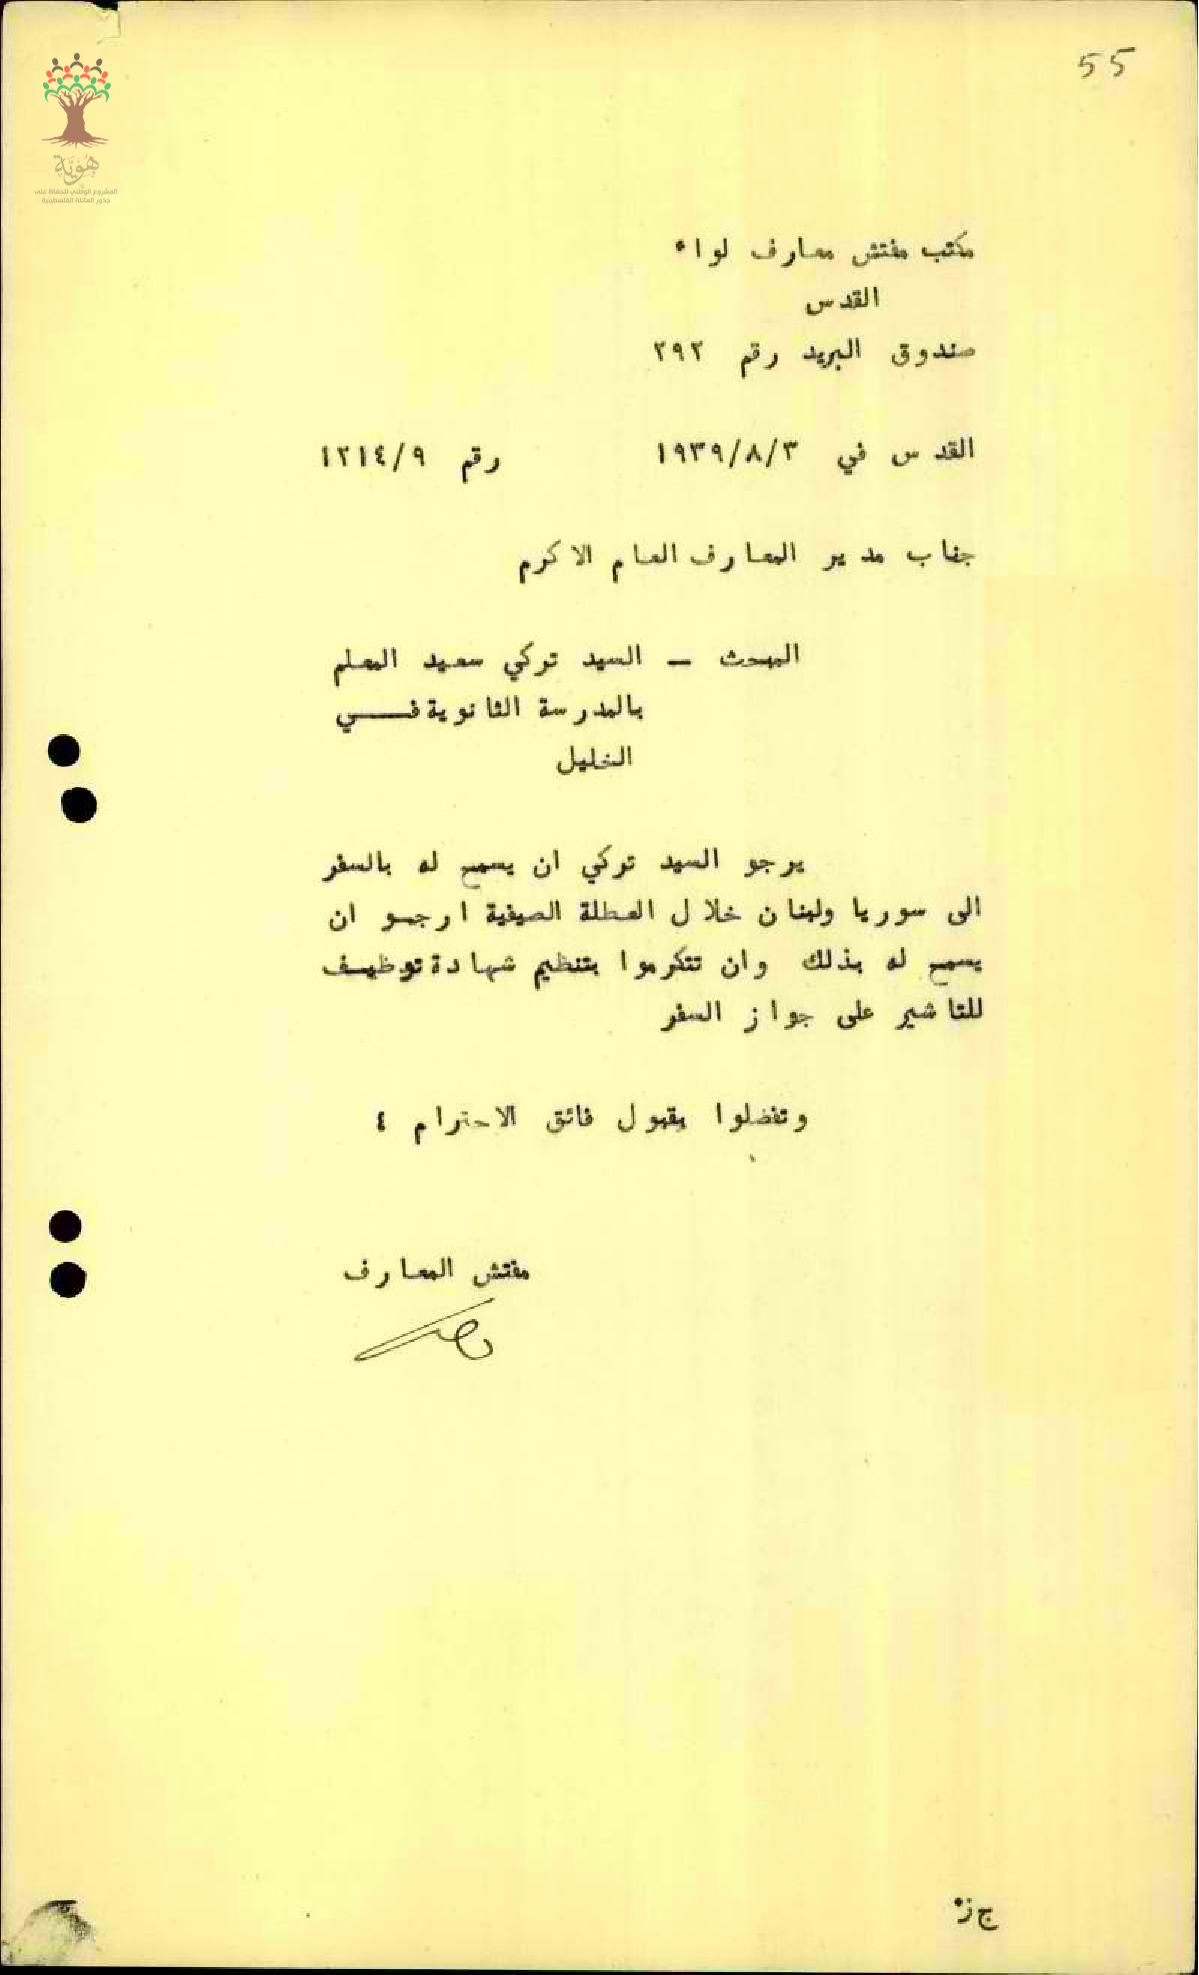 55
هُويَّة
المشروع الوطني للحفاظ على
جذور العائلة الفلسطينية
مكتب مفتش معارف لواء
القدس
صندوق البريد رقم ٢٩٢
القدس في ١٩٣٩/٨/٣ رقم ١٢١٤/٩
جناب مدير المعارف العام الاكرم
المبحث – السيد توكي سعيد المعلم
بالمدرسة الثانوية فـــي
الخليل
يرجو السيد توكي ان يسمح له بالسفر
الى سوريا ولبنان خلال العطلة الصيفية ارجـو ان
يسمح له بذلك وان تتكرموا بتنظيم شهادة توظيـف
للتاشير على جواز السفر
وتفضلوا بقبول فائق الاحترام ٤
مفتش المعارف
ج ز